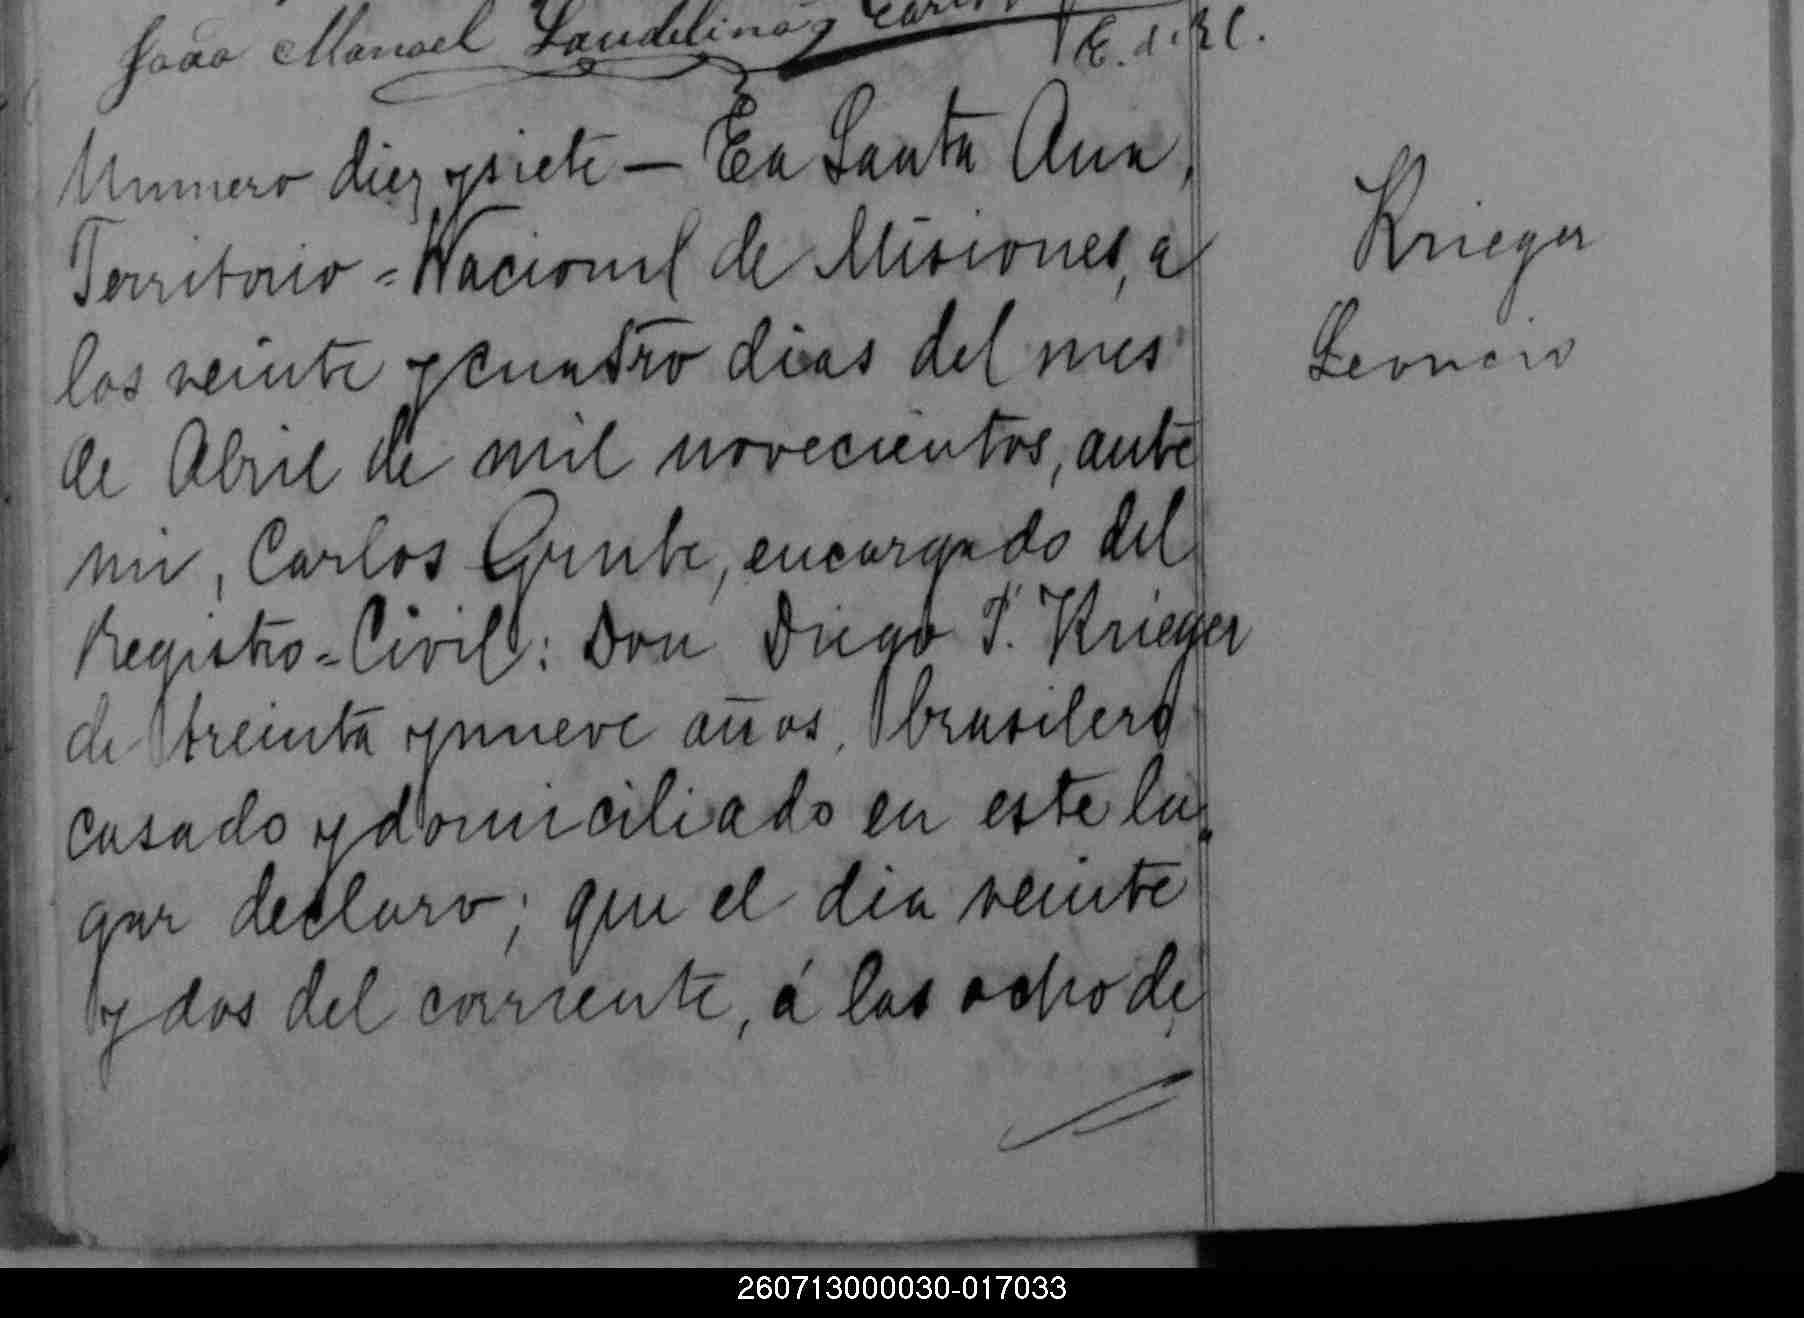 João Manoel Laudelino Carlos
E. d. R C.
Numero diez y siete — En Santa Ana,
Territorio = Nacional de Misiones, a
los veinte y cuatro dias del mes
de Abril de mil novecientos, ante
mi, Carlos Grube, encargado del
Registro = Civil: Don Diego T. Krieger
de treinta y nueve años, brasilero
casado y domiciliado en este lu
gar declaro; que el dia veinte
y dos del corriente, á las ocho de
Krieger
Leoncio
260713000030-017033